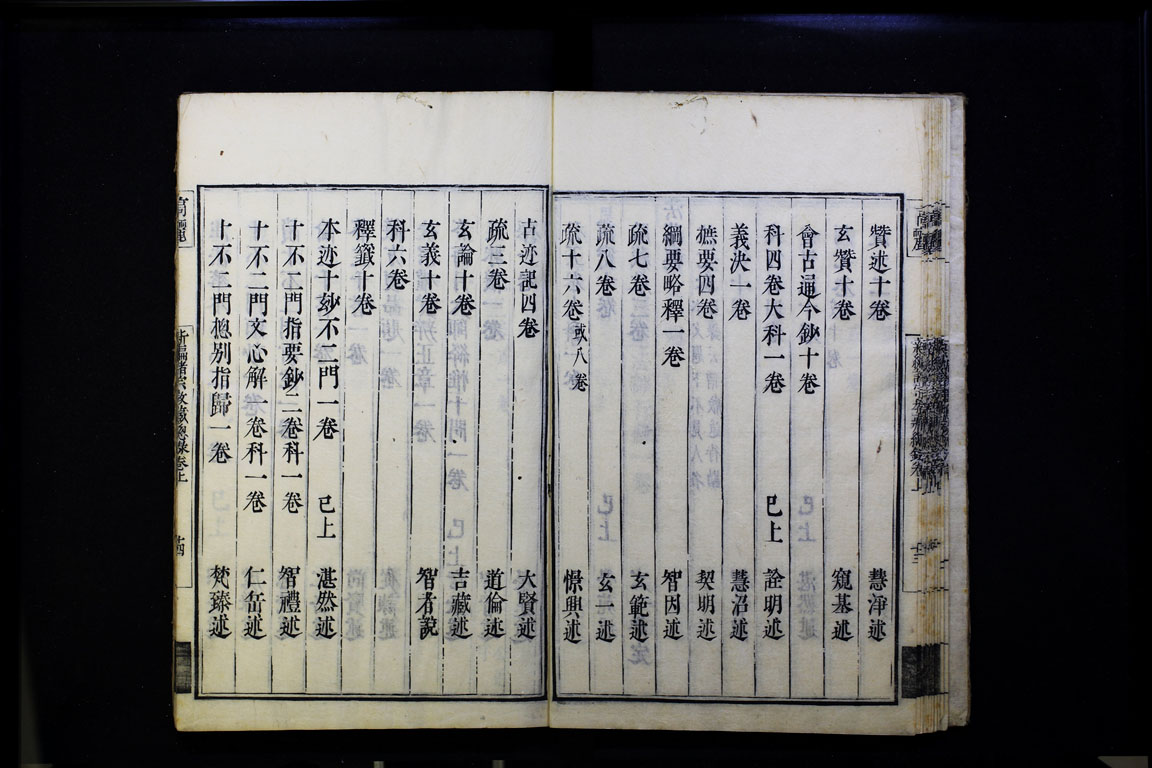 贊述十卷 慧淨述
玄贊十卷 窺基述
會古通今鈔十卷
科四卷大科一卷 已上 詮明述
義決一卷 慧沼述
攝要四卷 契明述
綱要略釋一卷 智因述
疏七卷 玄範述
疏八卷 玄一述
疏十六卷或八卷 憬興述
古迹記四卷 大賢述
疏三卷 道倫述
玄論十卷 吉藏述
玄義十卷 智者說
科六卷
釋籤十卷
本迹十玅不二門一卷 已上 湛然述
十不二門指要鈔二卷科一卷 智禮述
十不二門文心解一卷科一卷 仁岳述
十不二門揔别指歸一卷 梵臻述
高麗 新編諸宗教藏總錄卷上 十四